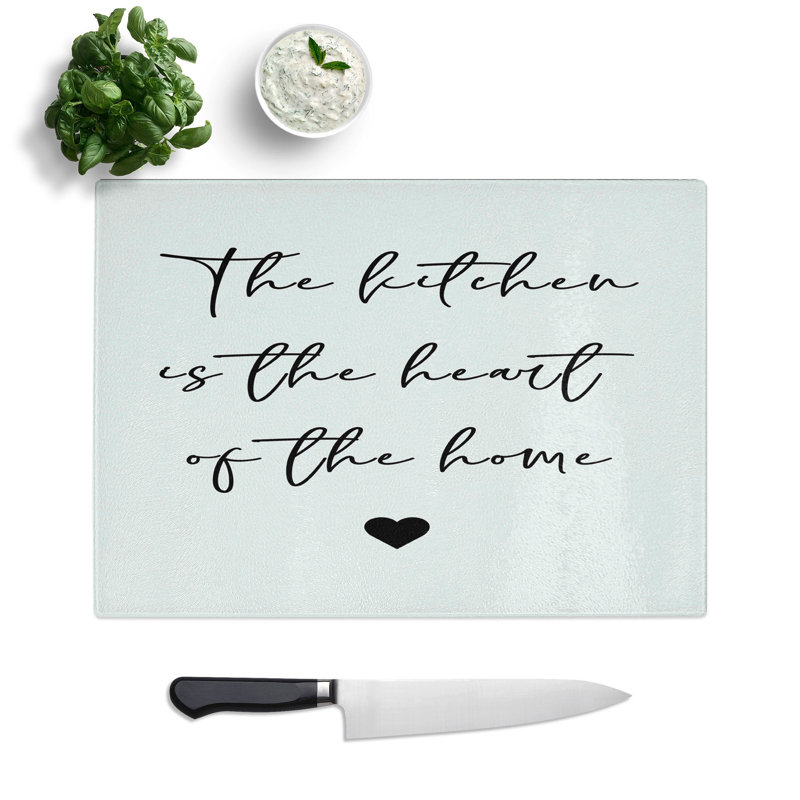 The kitchen
is the heart
of the home